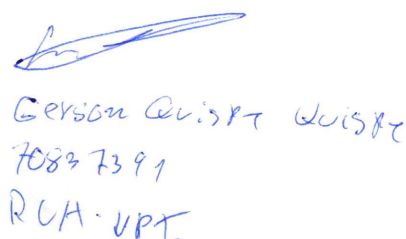 Gerson Quispe Quispe
70837391
RUA-UPT